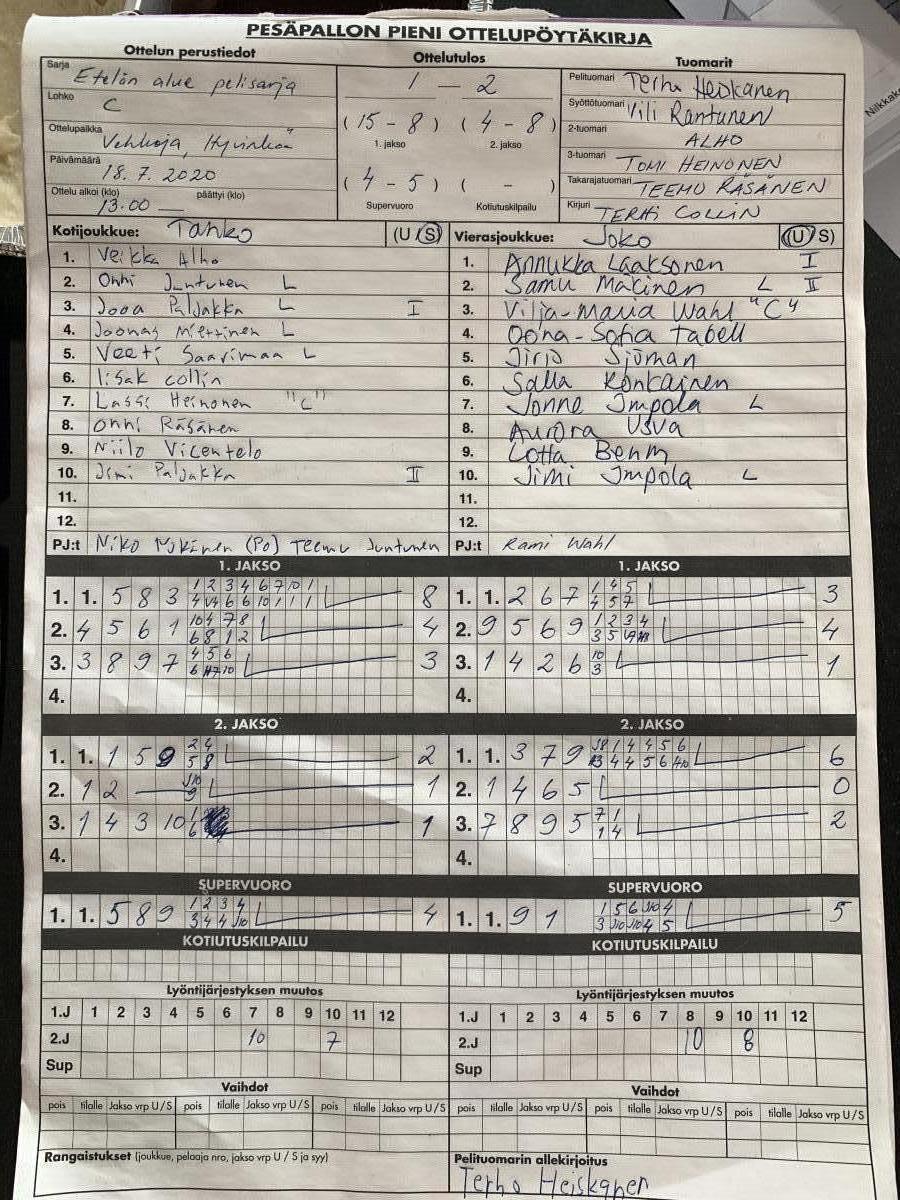 PESÄPALLON PIENI OTTELUPÖYTÄKIRJA
Ottelun perustiedot
Sarja Etelän alue pelisarja
Lohko C
Ottelupaikka Vehkoja, Hyvinkää
Päivämäärä 18.7.2020
Ottelu alkoi (klo) päättyi (klo)
13.00
Ottelutulos
1 - 2
(15 - 8) (4 - 8)
1. jakso 2. jakso
(4 - 5) ( - )
Supervuoro Kotiutuskilpailu
Tuomarit
Pelituomari Terho Heiskanen
Syöttötuomari Vili Rantunen
2-tuomari ALHO
3-tuomari TOMI HEINONEN
Takarajatuomari TEEMU RÄSÄNEN
Kirjuri TERHI COLLIN
Kotijoukkue: Tahko (U S)
1. Veikka Alho
2. Onni Juntunen L
3. Jooa Paljakka L I
4. Joonas Miettinen L
5. Veeti Saarimaa L
6. Iisak Collin
7. Lassi Heinonen "C"
8. Onni Räsänen
9. Niilo Vicentelo
10. Jimi Paljakka II
11.
12.
PJ:t Niko Mäkinen (Po) Teemu Juntunen
Vierasjoukkue: Joko (U S)
1. Annukka Laaksonen I
2. Samu Mäkinen L II
3. Vilja-Maria Wahl "C"
4. Oona-Sofia Tabell
5. Jirjo Sjöman
6. Salla Konkainen
7. Jonne Impola L
8. Aurora Usva
9. Lotta Behm
10. Jimi Impola L
11.
12.
PJ:t Rami Wahl
1. JAKSO
1. 1. 5 8 3 1 2 3 4 6 7 10 1 8
2. 4 5 6 1 10 4 7 8 4
6 8 1 2
3. 3 8 9 7 4 5 6 3
4.
1. JAKSO
1. 1. 2 6 7 1 4 5 3
4 5 7
2. 9 5 6 9 1 2 3 4 4
3. 1 4 2 6 10 1
3
4.
2. JAKSO
1. 1. 1 5 9 2 4 2
5 8
2. 1 2 J10 1
9
3. 1 4 3 10 1 1
6
4.
2. JAKSO
1. 1. 3 7 9 J8 1 4 4 5 6 6
2. 1 4 6 5 0
3. 7 8 9 5 7 1 2
1 4
4.
SUPERVUORO
1. 1. 5 8 9 1 2 3 4 4
3 4 4 J10
SUPERVUORO
1. 1. 9 1 1 5 6 J10 4 5
3 J10 J10 4 5
KOTIUTUSKILPAILU
KOTIUTUSKILPAILU
Lyöntijärjestyksen muutos
1.J 1 2 3 4 5 6 7 8 9 10 11 12
2.J 10 7
Sup
Lyöntijärjestyksen muutos
1.J 1 2 3 4 5 6 7 8 9 10 11 12
2.J 10 8
Sup
Vaihdot
pois tilalle Jakso vrp U/S pois tilalle Jakso vrp U/S pois tilalle Jakso vrp U/S
Vaihdot
pois tilalle Jakso vrp U/S pois tilalle Jakso vrp U/S pois tilalle Jakso vrp U/S
Rangaistukset (joukkue, pelaaja nro, jakso vrp U / S ja syy)
Pelituomarin allekirjoitus
Terho Heiskanen